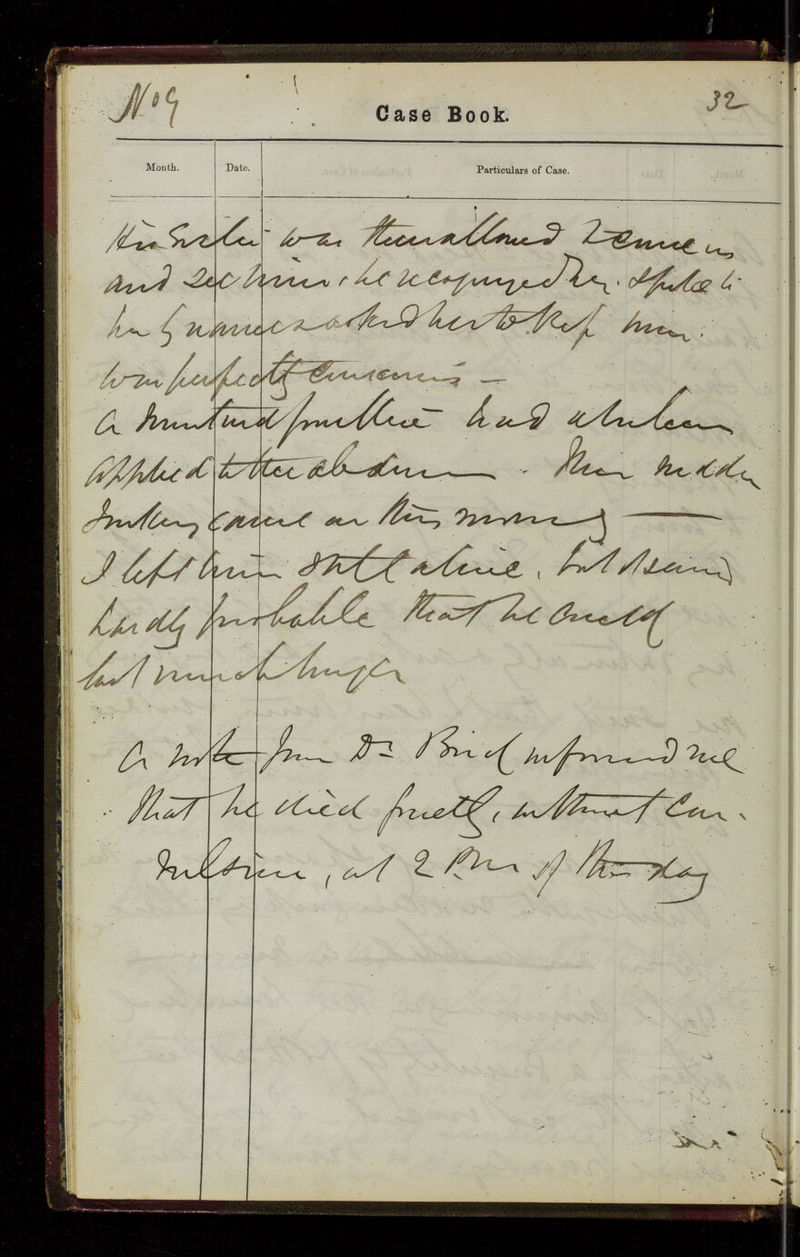 No 9
32
Case Book.
Month. Date. Particulars of Case.
His Sister was then allowed to come in
and see him, he recognized her. Spoke to
her by name & asked her to kiss him.
Was perfectly conscious —
A turpentine had also been
applied to the abdomen. This sudden
sinking came on this morning —
I left him still alive, but it seemed
hardly probable that he could
last much longer
A note from Dr informed me
that he died quietly, without con-
vulsions, at 2 P.M. of this day